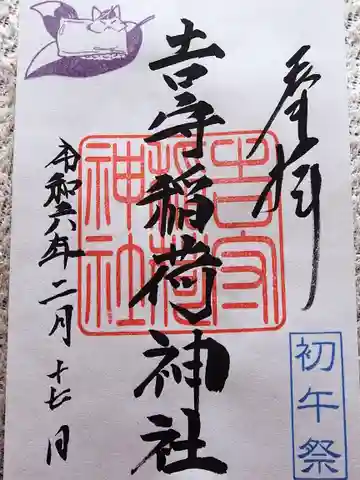 奉拝
吉守稲荷神社
令和六年二月十七日
吉守
稲荷
神社
初午祭